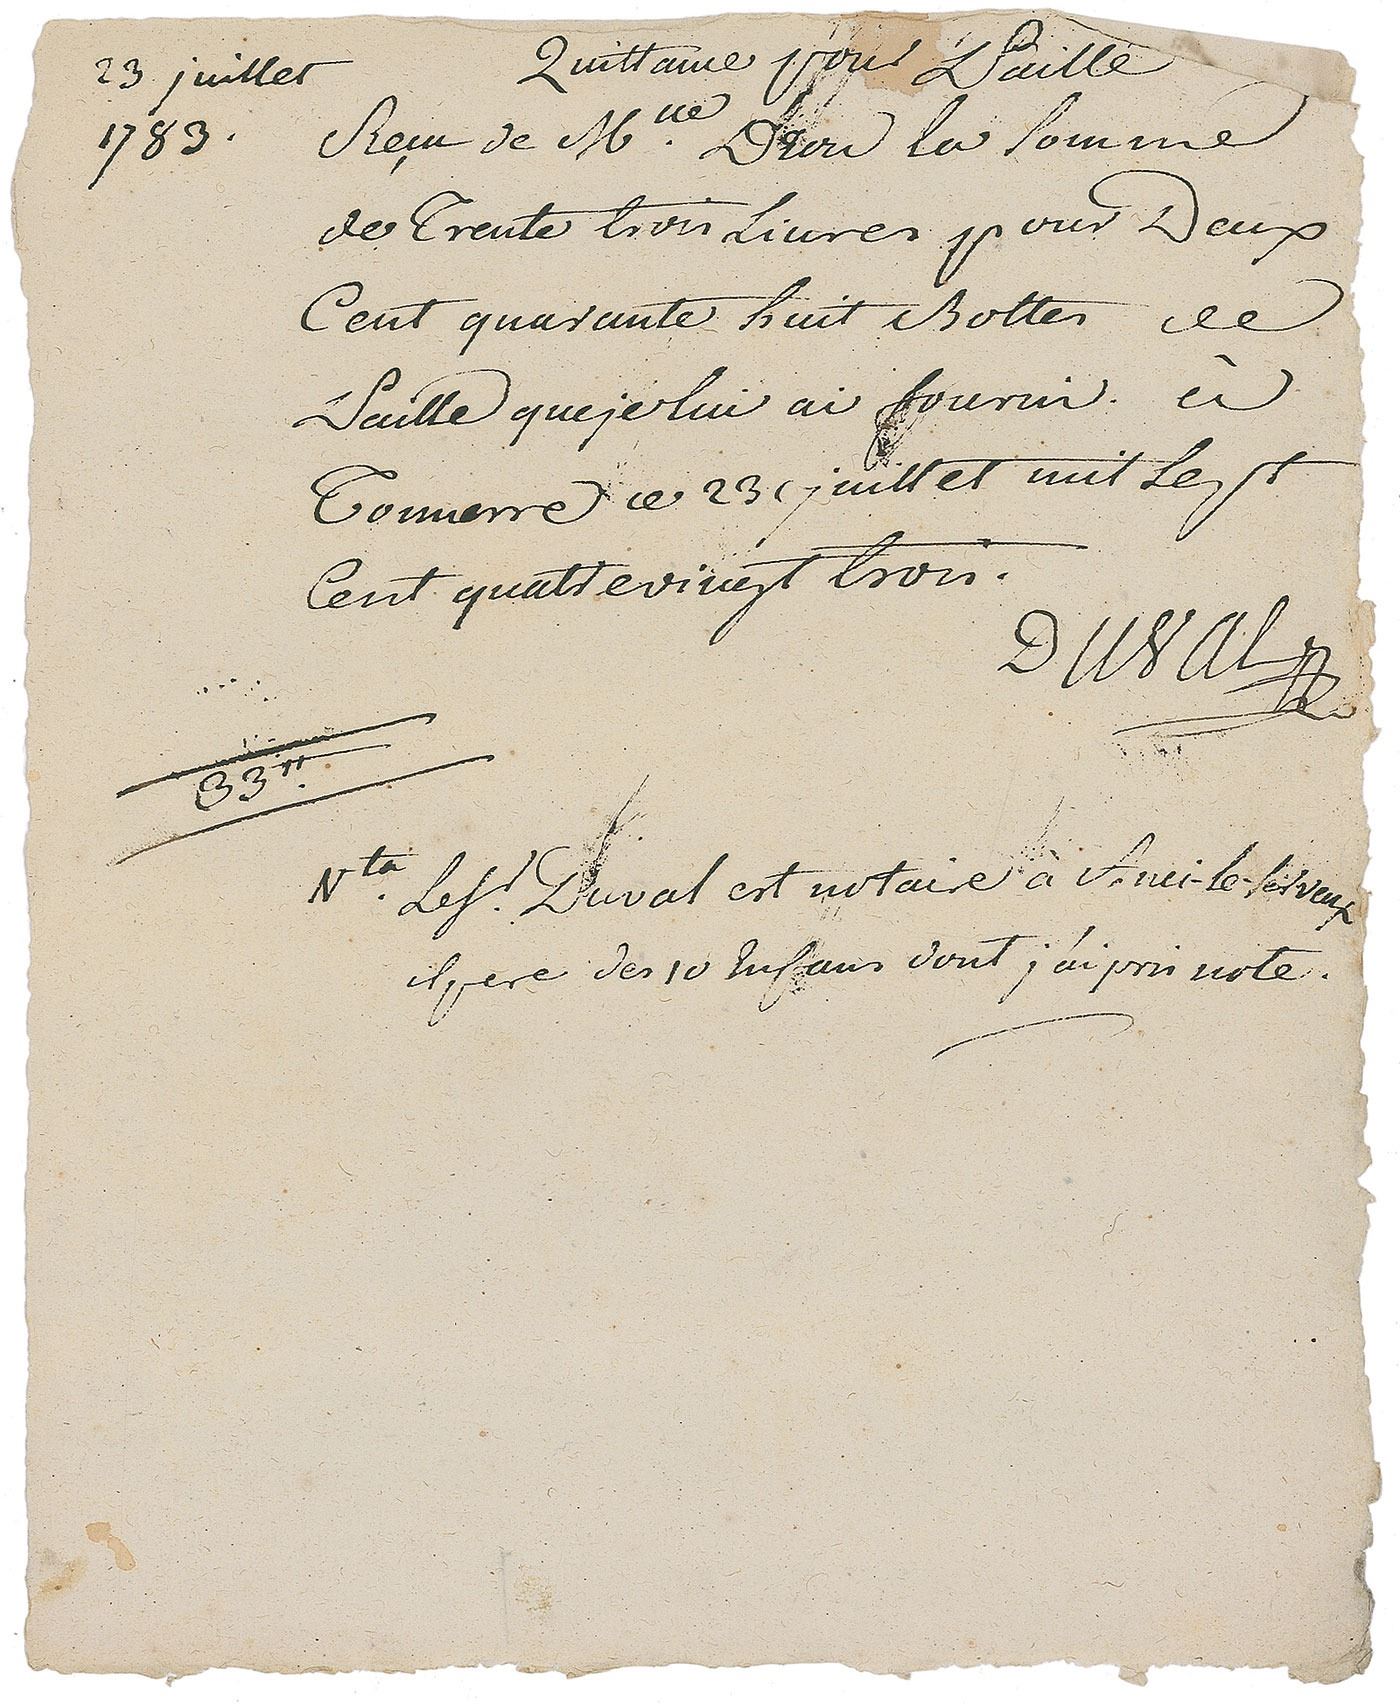 23 juillet
Quittance pour Paille
1783.
Reçu de M.lle Deon la somme
de Trente trois Livres pour Deux
Cent quarante huit Bottes de
Paille que je lui ai fourni à
Tonnerre ce 23 juillet mil sept
Cent quatrevingt trois.
DUVAL
33tt.
Nta. Le Sr. Duval est notaire à
il pere des 10 Enfans dont j'ai pris note.